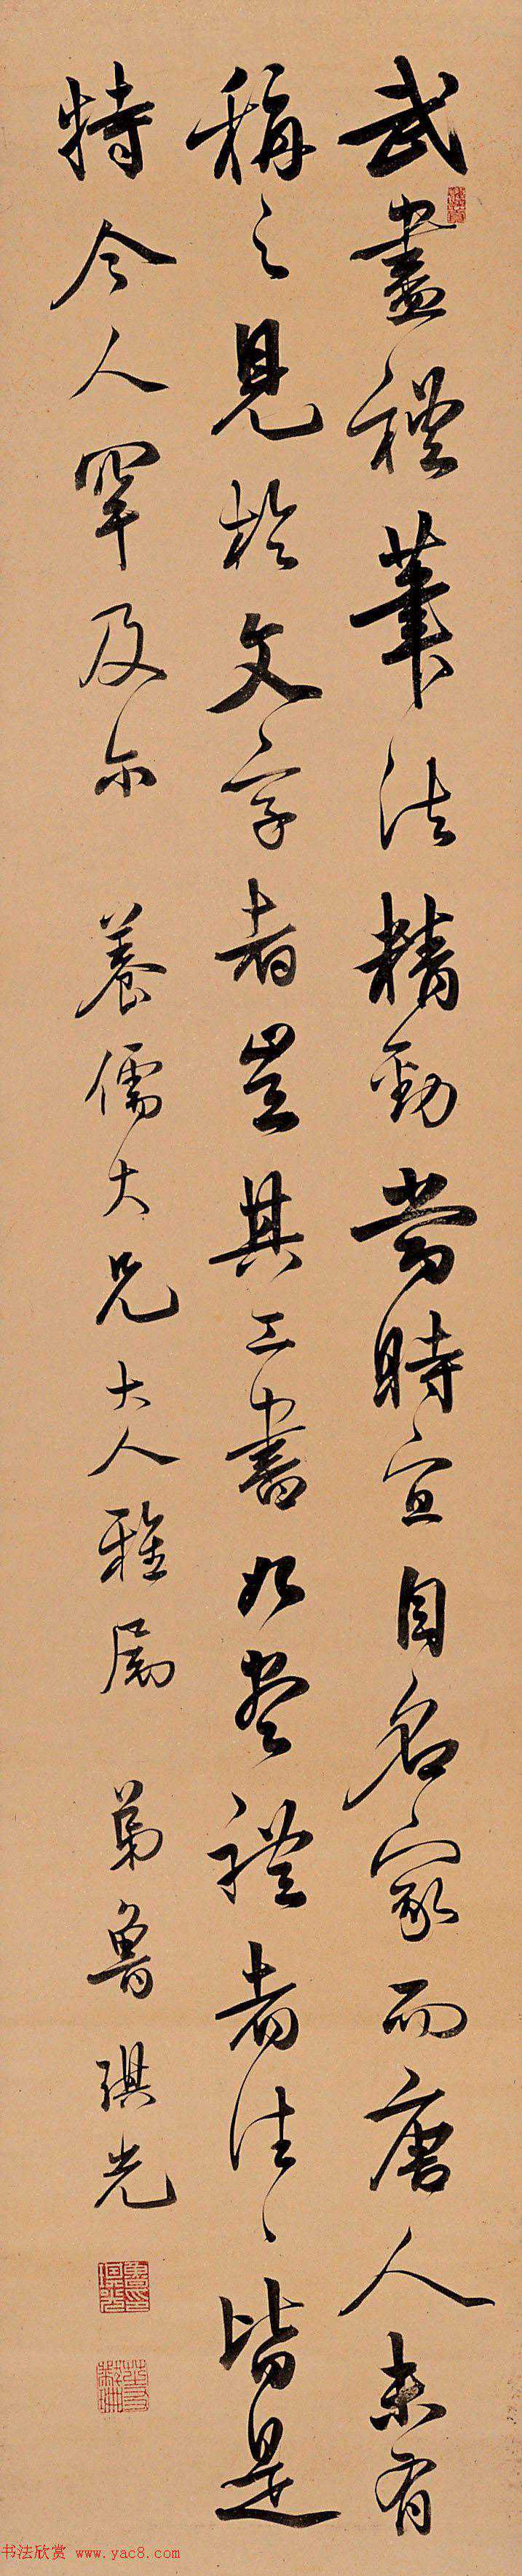 武盡禮筆法精勁當時宜自名家而唐人未有
稱之見於文字者豈其工書如盡禮者往〻皆是
特今人罕及尔 養儒大兄大人雅属 弟魯琪光
书法欣赏 www.yac8.com